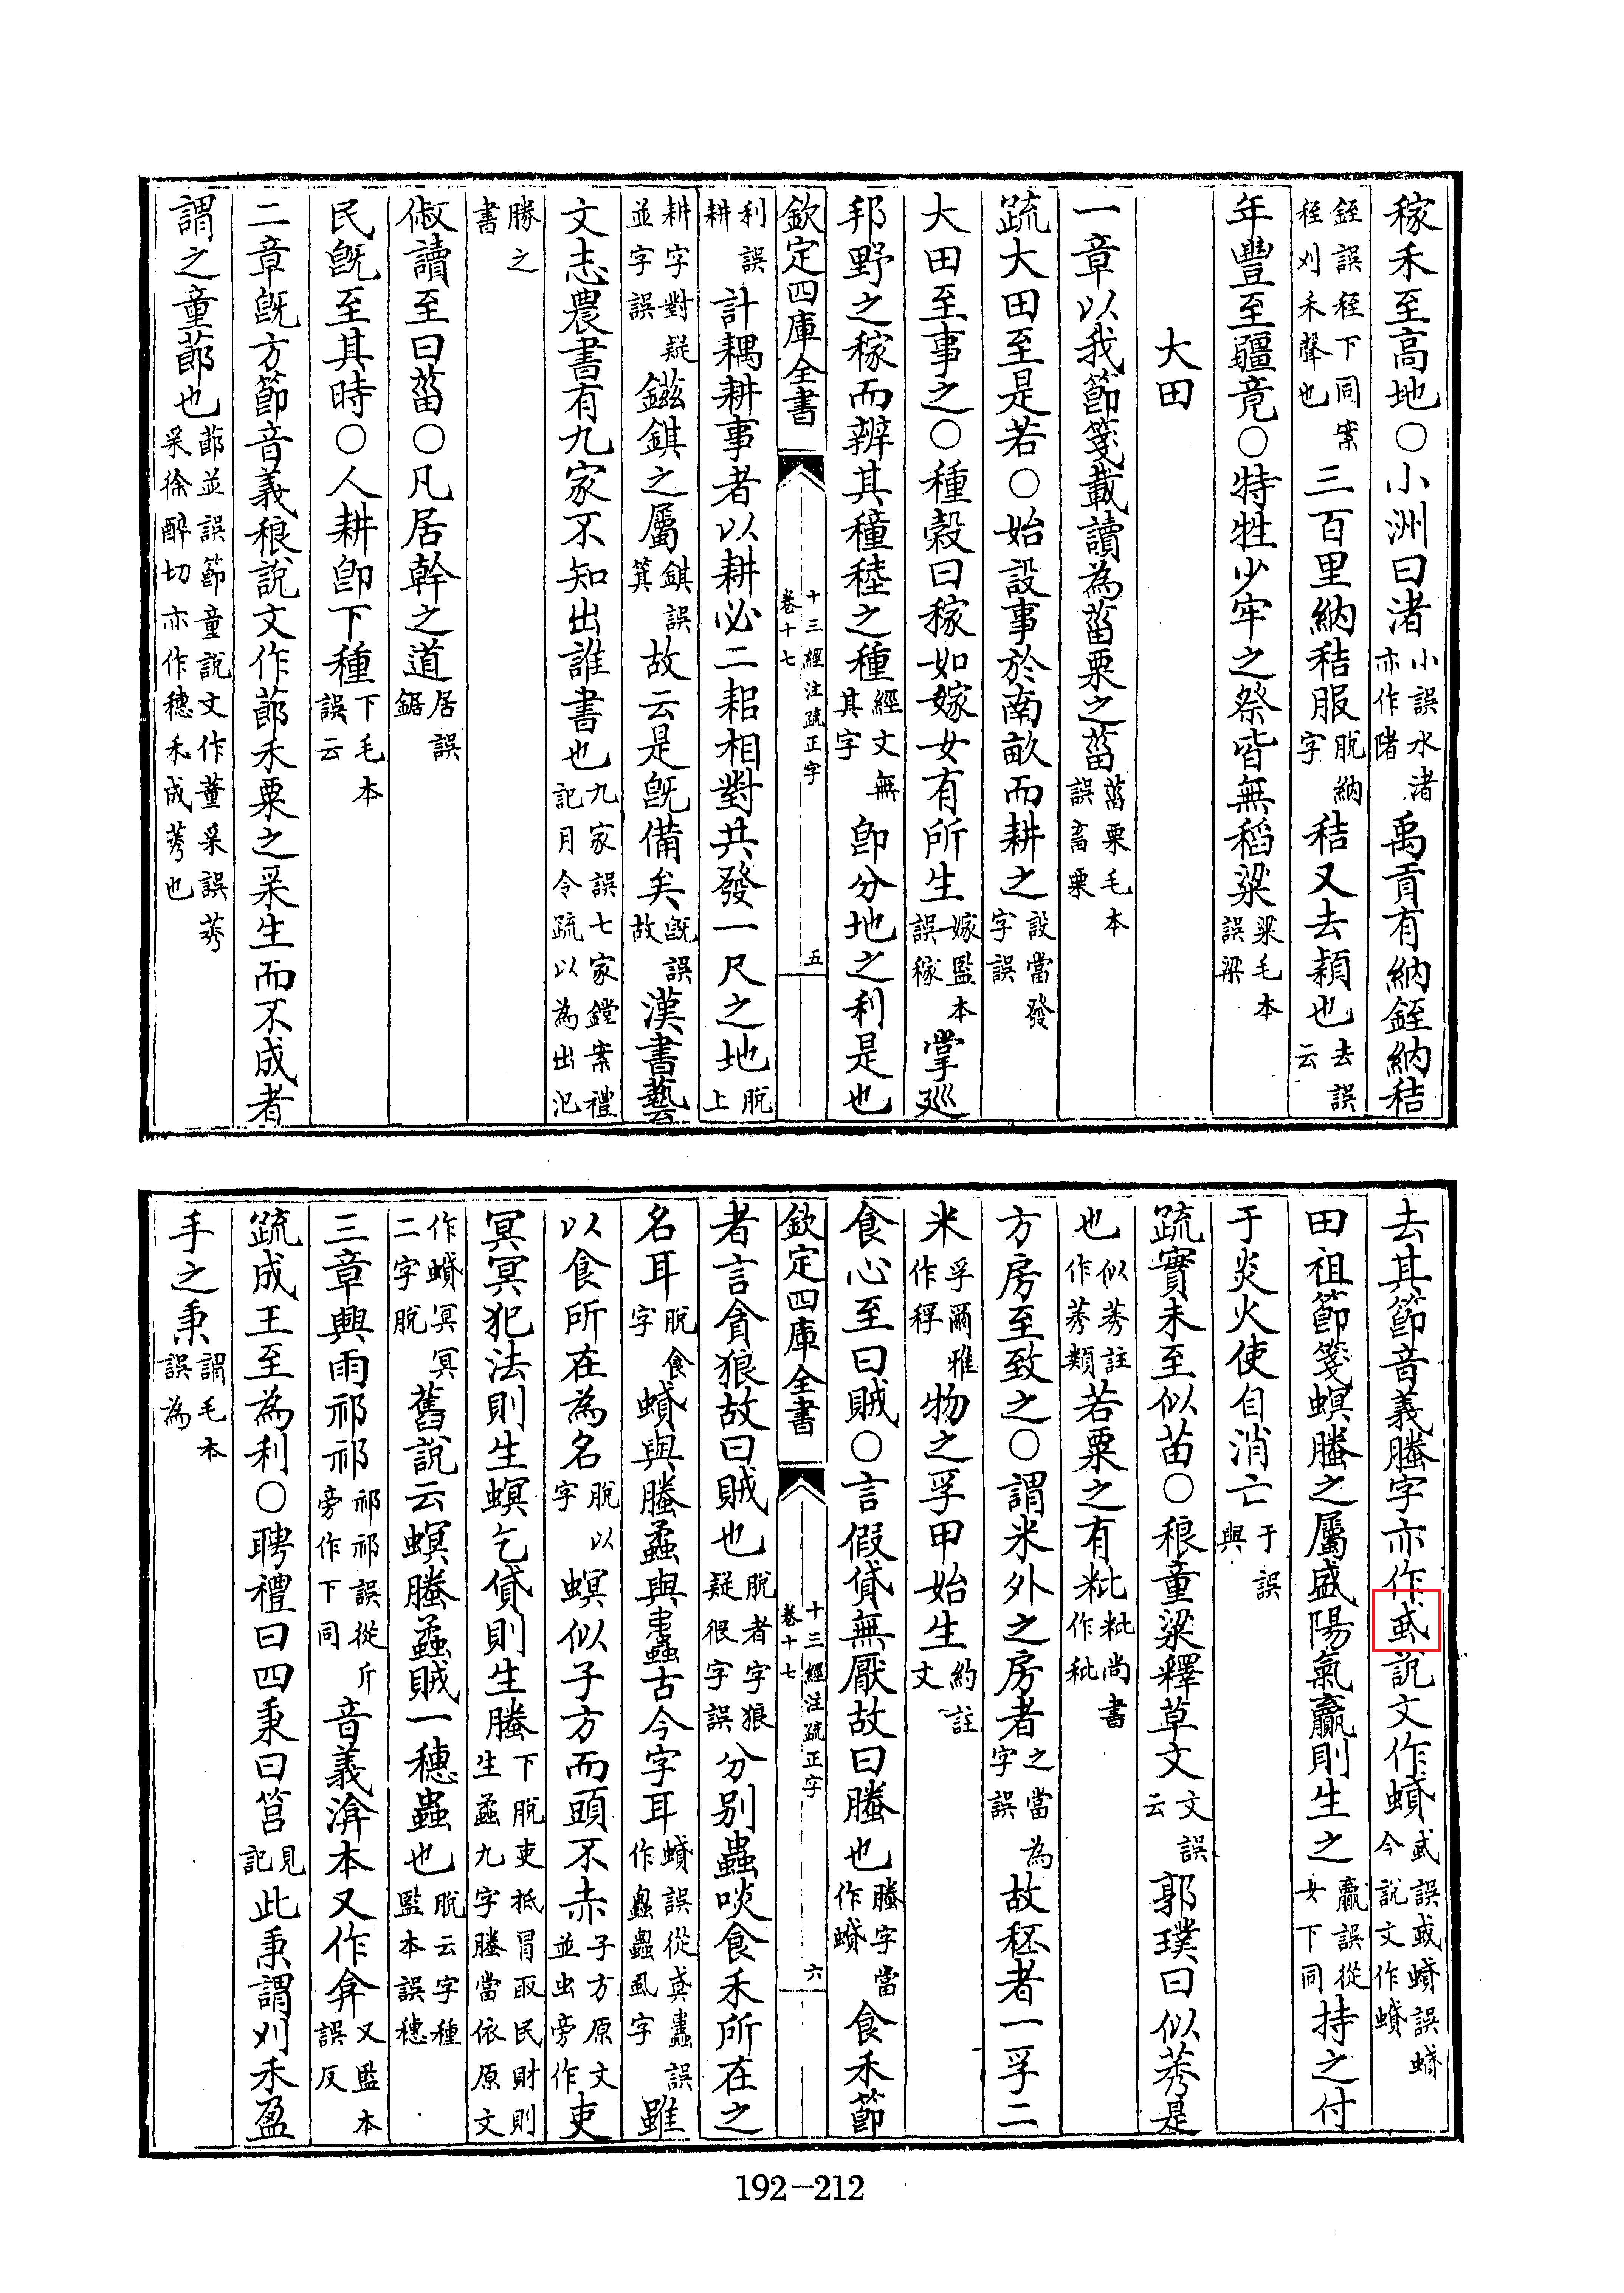 稼禾至高地○小洲曰渚小誤水渚亦作陼禹貢有納銍納秸
銍誤秷下同案秷刈禾聲也三百里納秸服脫納字秸又去穎也去誤云
年豐至疆竟○特牲少牢之祭皆無稻粱粱毛本誤梁
大田
一章以我節箋載讀為菑栗之菑菑栗毛本誤畜粟
疏大田至是若○始設事於南畝而耕之設當發字誤
大田至事之○種穀曰稼如嫁女有所生嫁監本誤稼掌廵
邦野之稼而辨其穜稑之種經文無其字卽分地之利是也
欽定四庫全書
十三經注疏正字
卷十七
五
利誤耕計耦耕事者以耕必二耜相對共發一尺之地脫上
耕字對疑並字誤鎡錤之屬錤誤箕故云是旣備矣旣誤故漢書藝
文志農書有九家不知出誰書也九家誤七家鏜案禮記月令疏以為出氾
勝之書
俶讀至曰菑○凡居幹之道居誤鋸
民旣至其時○人耕卽下種下毛本誤云
二章旣方節音義稂說文作蓈禾粟之采生而不成者
謂之童蓈也蓈並誤節童說文作董采誤莠采徐醉切亦作穗禾成莠也
去其節音義螣字亦作䖧說文作蟘䖧誤或蟘誤蟦今說文作蟘
田祖節箋螟螣之屬盛陽氣贏則生之贏誤從女下同持之付
于炎火使自消亡于誤與
疏實未至似苗○稂童粱釋草文文誤云郭璞曰似莠是
也似莠註作莠類若粟之有粃粃尚書作秕
方房至致之○謂米外之房者之當為字誤故秠者一孚二
米孚爾雅作稃物之孚甲始生約註文
食心至曰賊○言假貸無厭故曰螣也螣字當作蟘食禾節
欽定四庫全書
十三經注疏正字
卷十七
六
者言貪狼故曰賊也脫者字狼疑很字誤分别蟲啖食禾所在之
名耳脫食字蟘與螣蟊與蟗古今字耳蟘誤從貢蟗誤作蟲蟲虱字雖
以食所在為名脫以字螟似子方而頭不赤子方原文並虫旁作吏
冥冥犯法則生螟乞貸則生螣下脫吏抵冒取民財則生蟊九字螣當依原文
作蟘冥冥二字脫舊說云螟螣蟊賊一穗蟲也脫云字種監本誤穗
三章興雨祁祁祁祁誤從斤旁作下同音義渰本又作弇又監本誤反
疏成王至為利○聘禮曰四秉曰筥見記此秉謂刈禾盈
手之秉謂毛本誤為
192-212